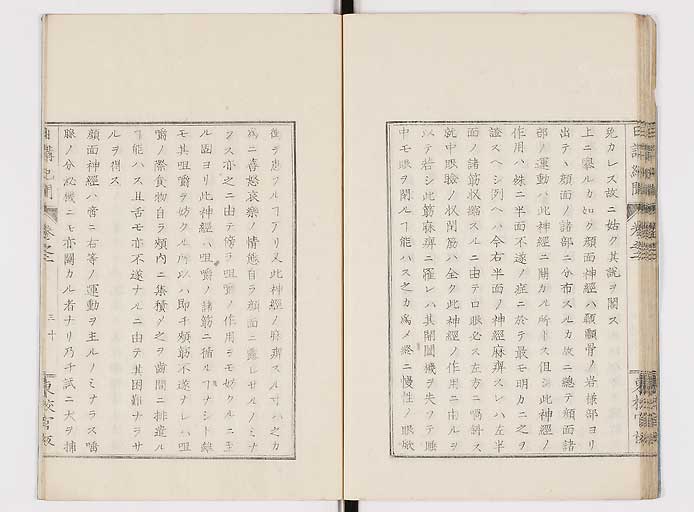 免カレス故ニ姑ク其説ヲ闕ス
上ニ擧ルカ如ク顔面神經ハ顳顬骨ノ岩樣部ヨリ
出テヽ顔面ノ諸部ニ分布スルカ故ニ總テ顔面諸
部ノ運動ハ此神經ニ關カル所トス但シ此神經ノ
作用ハ殊ニ半面不遂ノ症ニ於テ最モ明カニ之ヲ
證スヘシ例ヘハ今右半面ノ神經麻痺スレハ左半
面ノ諸筋収縮スルニ由テ口眼必ス左方ニ喎斜ス
就中眼瞼ノ状閉筋ハ全ク此神經ノ作用ニ由ルヲ
以テ若シ此筋麻痺ニ罹レハ其開闔機ヲ失フテ睡
中モ眼ヲ閉ルヿ能ハス之カ爲メ終ニ慢性ノ眼焮
衝ヲ患フルヿアリ又此神經ノ麻痺スル寸ハ之カ
爲ニ喜怒哀樂ノ情態自ラ顔面ニ露ハサルノミナ
ラス亦之ニ由テ傍ラ咀嚼ノ作用ヲモ妨クルニ至
ル固ヨリ此神經ハ咀嚼ノ諸筋ニ循ルヿナシト雖
モ其咀嚼ヲ妨クル所以ハ即チ頬筋不遂ナレハ咀
嚼ノ際食物自ラ頬内ニ集積メ之ヲ齒間ニ排進ル
ヿ能ハス且舌モ亦不遂ナルニ由テ其困難ナラサ
ルヲ得ス
顔面神經ハ啻ニ右等ノ運動ヲ主ルノミナラス唾
腺ノ分泌機ニモ亦關カル者ナリ乃チ試ニ犬ヲ捕
日講紀聞
卷之二
三十
東校官板